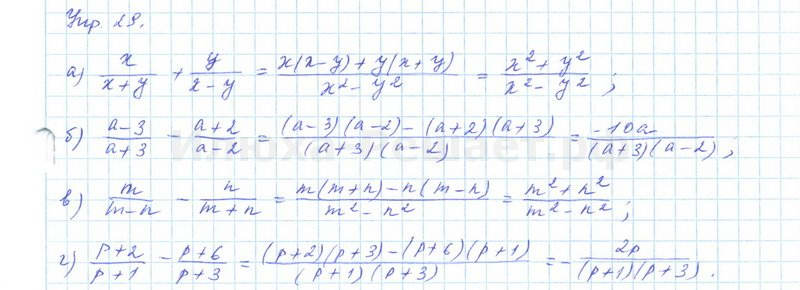 Упр. 29.
а) x/(x+y) + y/(x-y) = (x(x-y)+y(x+y))/(x²-y²) = (x²+y²)/(x²-y²);
б) (a-3)/(a+3) - (a+2)/(a-2) = ((a-3)(a-2)-(a+2)(a+3))/((a+3)(a-2)) = -10a/((a+3)(a-2));
в) m/(m-n) - n/(m+n) = (m(m+n)-n(m-n))/(m²-n²) = (m²+n²)/(m²-n²);
г) (p+2)/(p+1) - (p+6)/(p+3) = ((p+2)(p+3)-(p+6)(p+1))/((p+1)(p+3)) = -2p/((p+1)(p+3)).